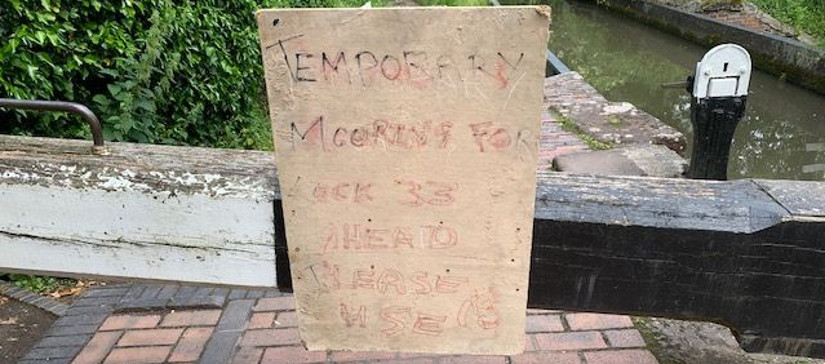 TEMPORARY
MOORING FOR
LOCK 33
AHEAD
PLEASE
USE